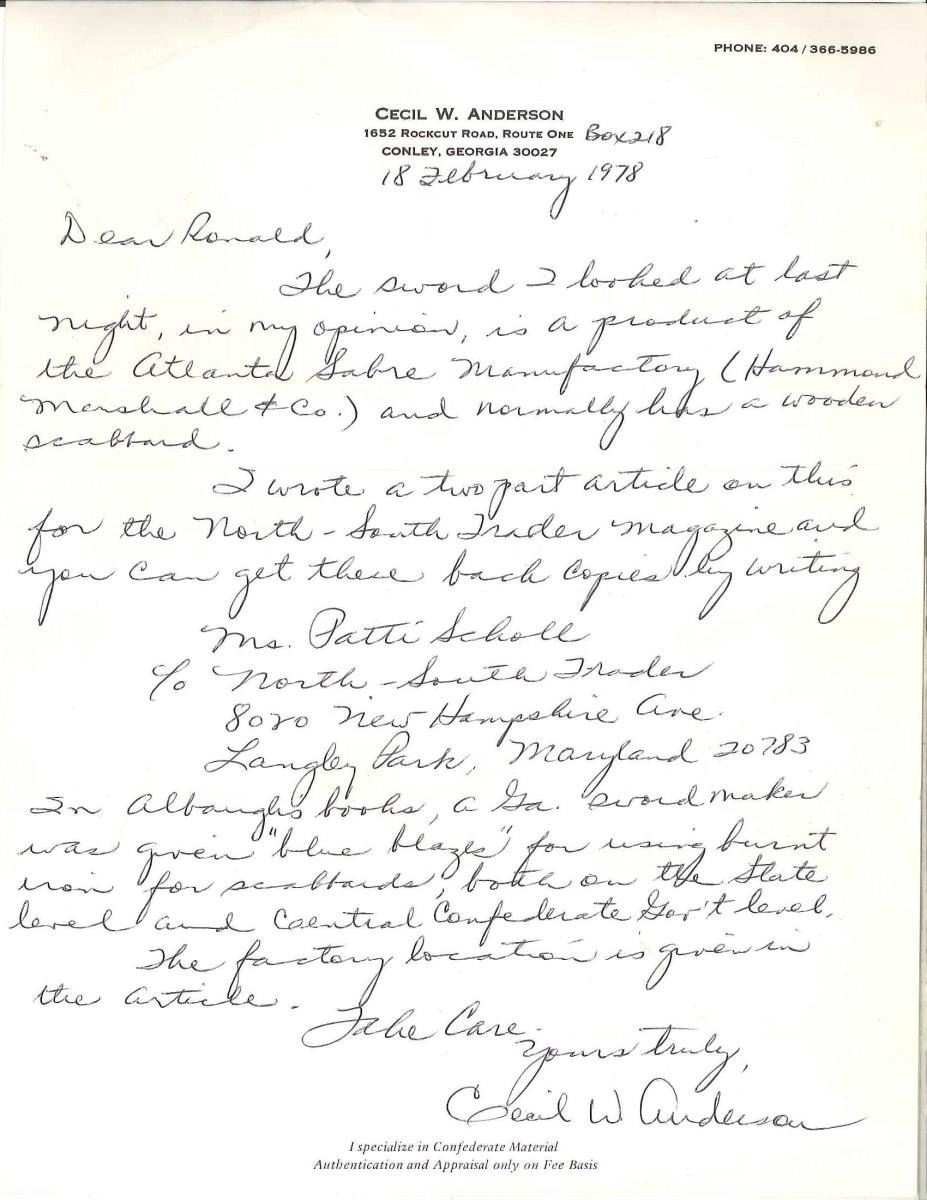 PHONE: 404 / 366-5986
CECIL W. ANDERSON
1652 ROCKCUT ROAD, ROUTE ONE Box 218
CONLEY, GEORGIA 30027
18 February 1978
Dear Ronald,
The sword I looked at last
night, in my opinion, is a product of
the Atlanta Sabre Manufactory (Hammond
Marshall & Co.) and normally has a wooden
scabbard.
I wrote a two part article on this
for the North-South Trader magazine and
you can get these back copies by writing
Ms. Patti Scholl
c/o North-South Trader
8020 New Hampshire Ave.
Langley Park, Maryland 20783
In Albaughs books, a Ga. sword maker
was given "blue blazes" for using burnt
iron for scabbards, both on the State
level and Central Confederate Gov't level.
The factory location is given in
the article.
Take Care.
Yours truly,
Cecil W. Anderson
I specialize in Confederate Material
Authentication and Appraisal only on Fee Basis